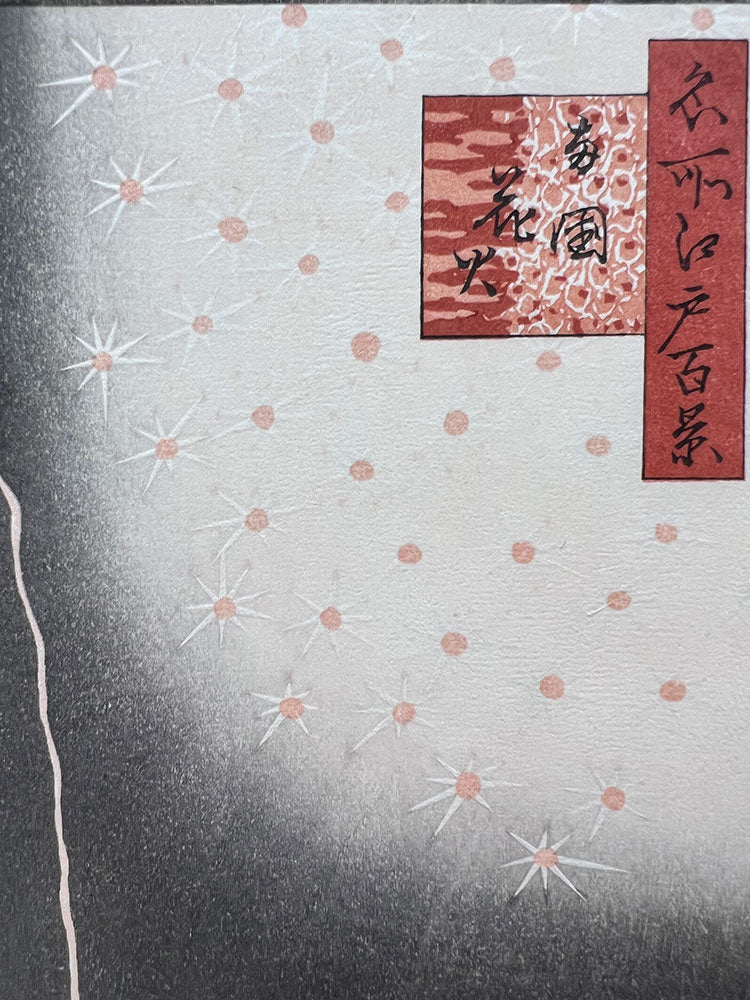 名所江戸百景
両国
花火